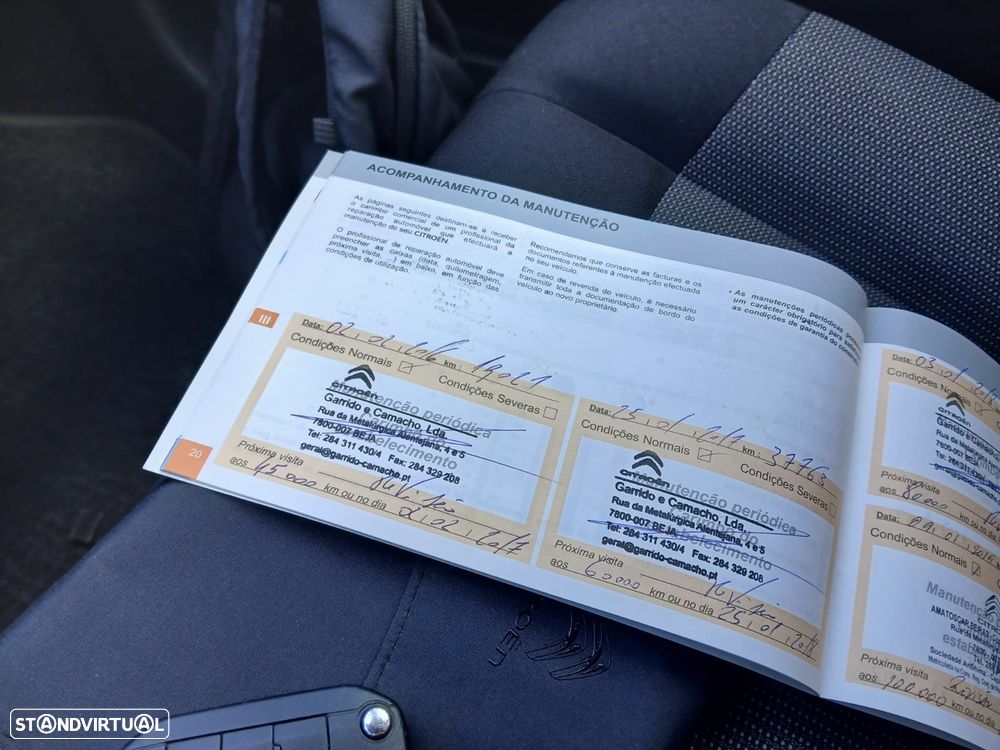 ACOMPANHAMENTO DA MANUTENÇÃO
As páginas seguintes destinam-se a receber
o carimbo comercial de um profissional da
reparação automóvel que efectuará a
manutenção do seu CITROËN.
O profissional de reparação automóvel deve
preencher as caixas (data, quilometragem,
próxima visita, ...) em baixo, em função das
condições de utilização.
Recomendamos que conserve as facturas e os
documentos referentes à manutenção efectuada
no seu veículo.
Em caso de revenda do veículo, é necessário
transmitir toda a documentação de bordo do
veículo ao novo proprietário.
- As manutenções periódicas
um carácter obrigatório para
as condições de garantia do
III
Data: 02.02.2016 km: 19021
Condições Normais Condições Severas
CITROËN
Manutenção periódica
Garrido e Camacho, Lda.
Rua da Metalúrgica Alentejana, 4 e 5
7800-007 BEJA
estabelecimento
Tel: 284 311 430/4 Fax: 284 329 208
geral@garrido-camacho.pt
Próxima visita
aos 45.000 km ou no dia 2.02.2017
20
Data: 25.01.2017 km: 37763
Condições Normais Condições Severas
CITROËN
Manutenção periódica
Garrido e Camacho, Lda.
Rua da Metalúrgica Alentejana, 4 e 5
7800-007 BEJA
estabelecimento
Tel: 284 311 430/4 Fax: 284 329 208
geral@garrido-camacho.pt
Próxima visita
aos 60000 km ou no dia 25.01.2018
Data: 03.01.2018
Condições Normais
CITROËN
Garrido e
Rua da Metalúrgica
7800-007 BEJA
Próxima visita
aos 80000 km ou no
Data: 09.01.2019
Condições Normais
Manutenção
AMATOSCAR, BEIRAS
Rua da
7800
Sociedade Anónima
Próxima visita
aos 100000 km ou no
STANDVIRTUAL